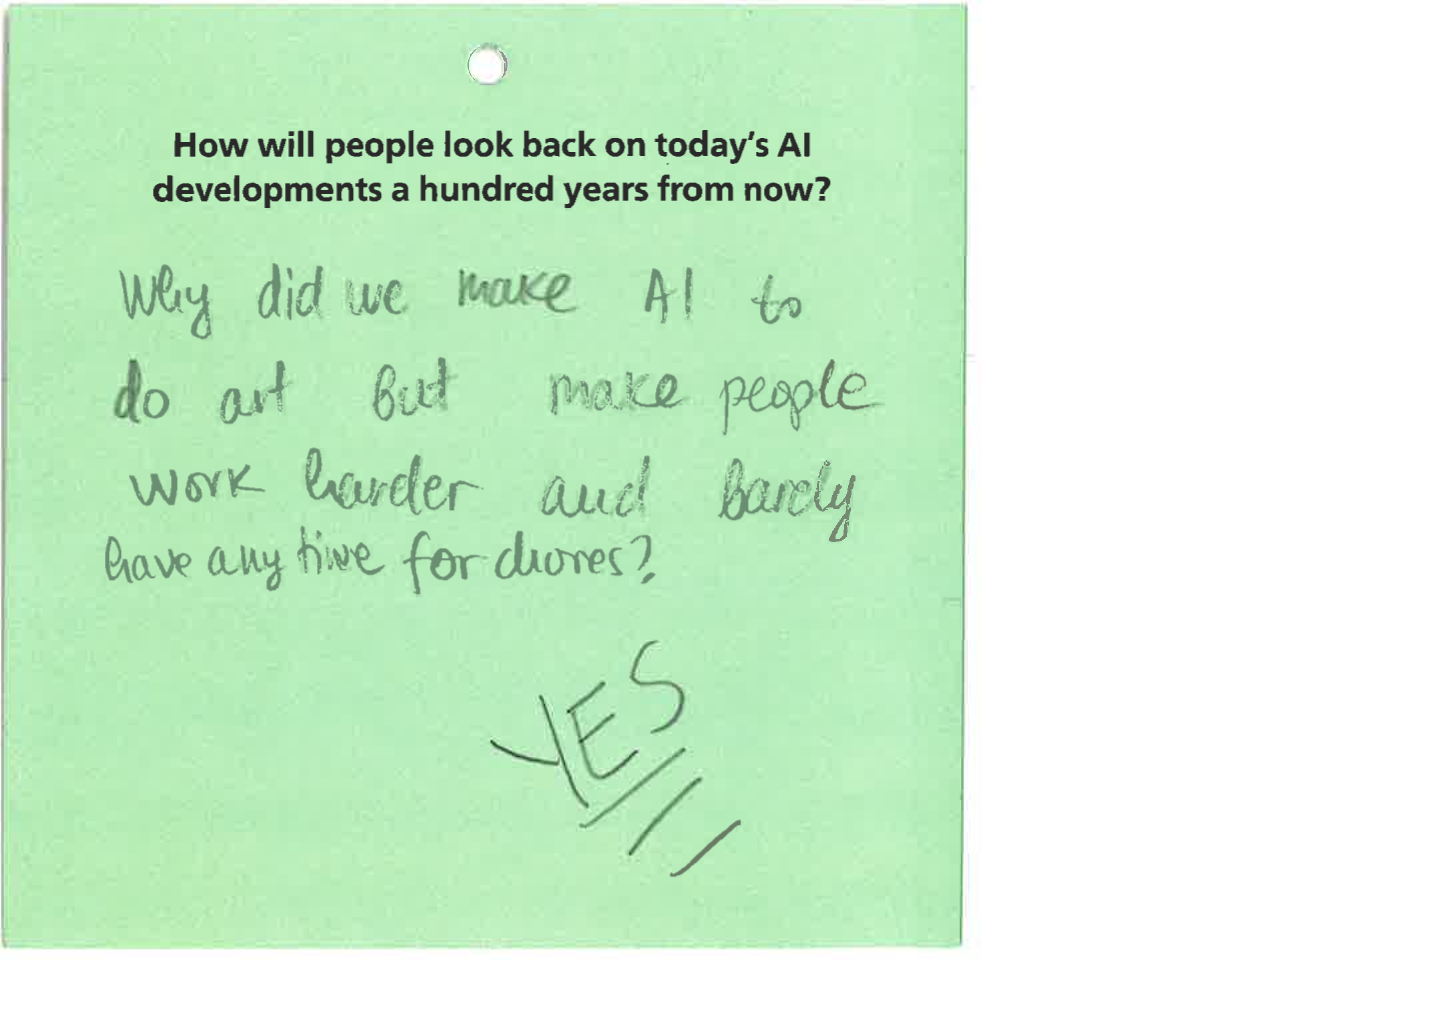 How will people look back on today's AI
developments a hundred years from now?
Why did we make AI to
do art but make people
work harder and barely
have any time for chores?
YES